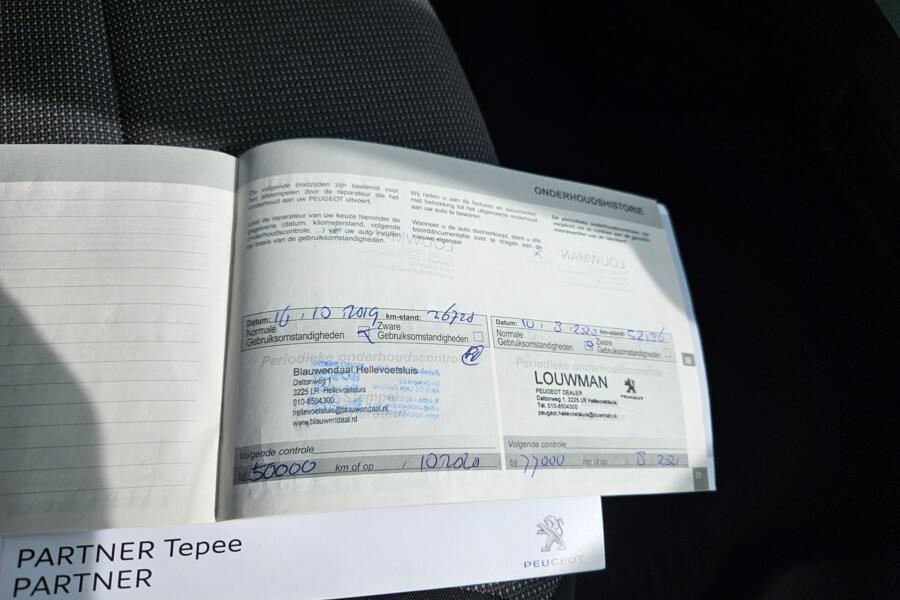 ONDERHOUDSHISTORIE
De volgende bladzijden zijn bestemd voor
het afstempelen door de reparateur die het
onderhoud aan uw PEUGEOT uitvoert.
Laat de reparateur van uw keuze hieronder de
gegevens (datum, kilometerstand, volgende
onderhoudscontrole, ...) van uw auto invullen
op basis van de gebruiksomstandigheden.
Wij raden u aan de facturen en documenten
met betrekking tot het uitgevoerde onderhoud
aan uw auto te bewaren.
Wanneer u de auto doorverkoopt, dient u alle
boorddocumentatie over te dragen aan de
nieuwe eigenaar.
De periodieke onderhoudscontroles zijn
verplicht om te voldoen aan de garantie-
voorwaarden van de fabrikant.
Datum: 16 / 10 2019 km-stand: 26728
Normale
Gebruiksomstandigheden
Zware
Gebruiksomstandigheden
Periodieke onderhoudscontrole
Blauwendaal Hellevoetsluis
Daltonweg 1
3225 LR Hellevoetsluis
010-8504300
hellevoetsluis@blauwendaal.nl
www.blauwendaal.nl
Volgende controle
bij 50000 km of op / 10 2020
Datum: 10 / 8 / 2020 km-stand: 52196
Normale
Gebruiksomstandigheden
Zware
Gebruiksomstandigheden
Periodieke onderhoudscontrole
LOUWMAN
PEUGEOT DEALER
PEUGEOT
Daltonweg 1, 3225 LR Hellevoetsluis
Tel. 010-8504300
peugeot.hellevoetsluis@louwman.nl
Volgende controle
bij 77000 km of op / 8 2021
PARTNER Tepee
PARTNER
PEUGEOT